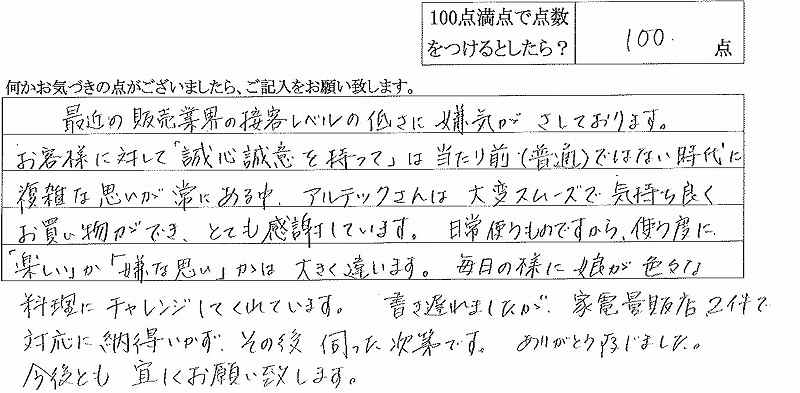 100点満点で点数
をつけるとしたら？ 100. 点
何かお気づきの点がございましたら、ご記入をお願い致します。
最近の販売業界の接客レベルの低さに嫌気がさしております。
お客様に対して「誠心誠意を持って」は当たり前（普通）ではない時代に
複雑な思いが常にある中、アルテックさんは大変スムーズで気持ち良く
お買い物ができ、とても感謝しています。日常使うものですから、使う度に
「楽しい」か「嫌な思い」かは大きく違います。毎日の様に娘が色々な
料理にチャレンジしてくれています。書き遅れましたが、家電量販店2件で
対応に納得いかず、その後伺った次第です。ありがとう存じました。
今後とも宜しくお願い致します。